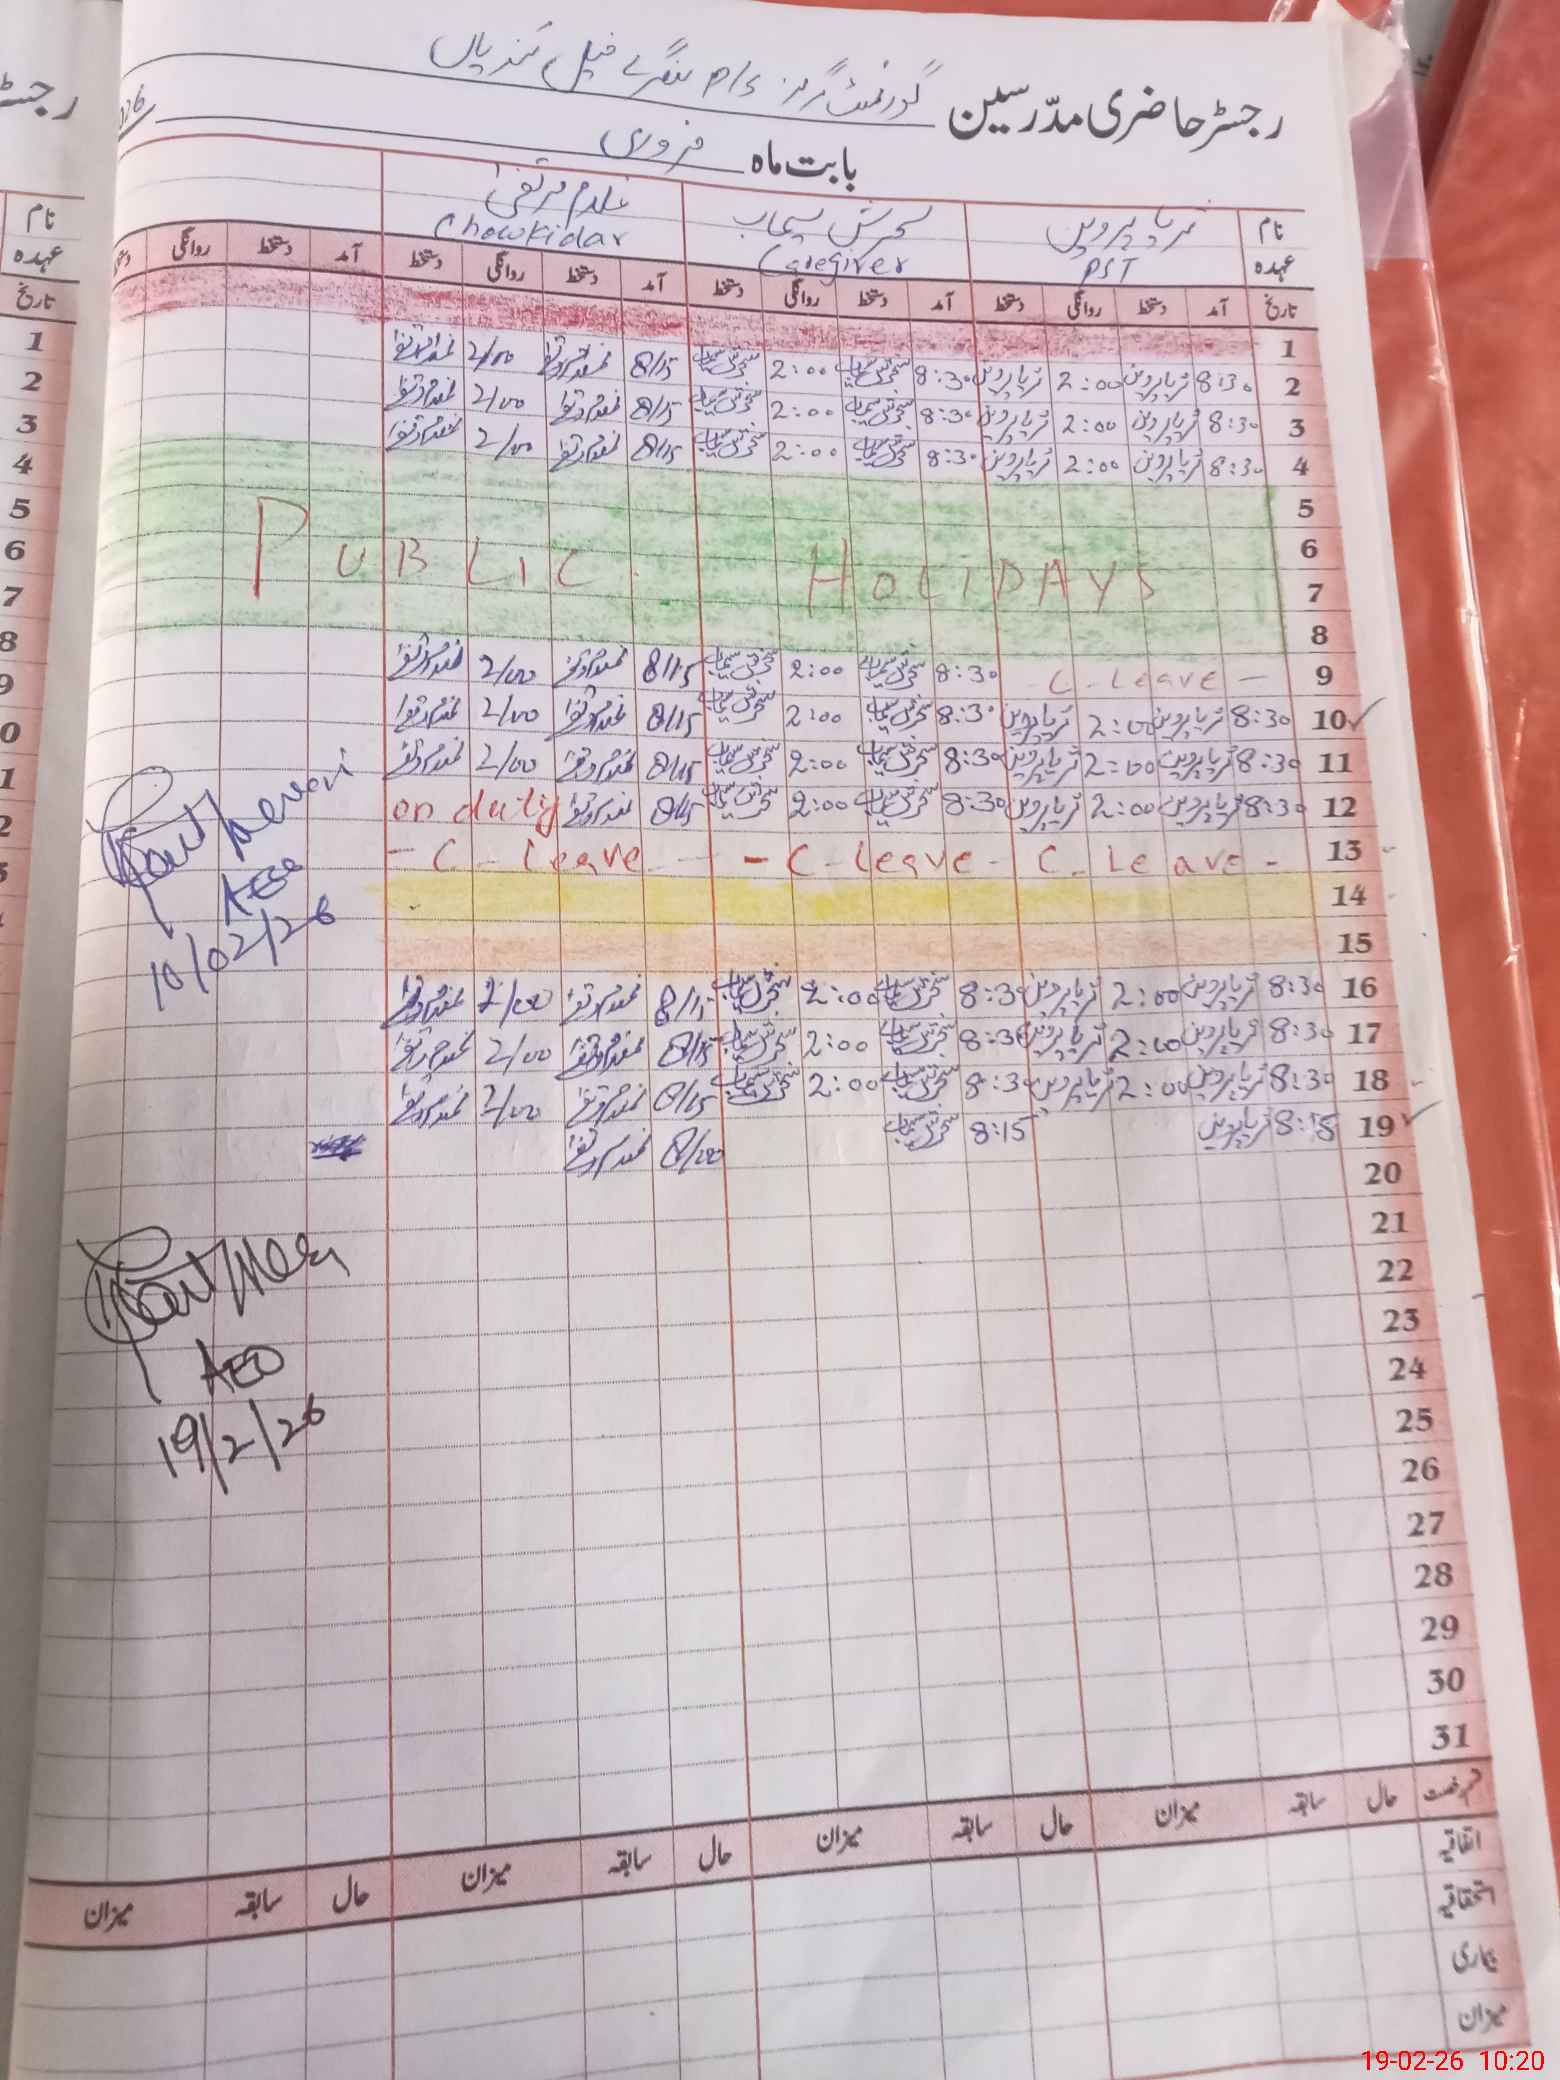 رجسٹر حاضری مدرسین گورنمنٹ گرلز P/S
بابت ماہ فروری
نام ثریا پروین سحرش سیماب غلام مرتضیٰ
عہدہ PST Caregiver Chowkidar
تاریخ آمد دستخط روانگی دستخط آمد دستخط روانگی دستخط آمد دستخط روانگی دستخط آمد دستخط روانگی
1
2 8:30 ثریا پروین 2:00 ثریا پروین 8:30 سحرش سیماب 2:00 سحرش سیماب 8/15 غلام مرتضیٰ 2/00 غلام مرتضیٰ
3 8:30 ثریا پروین 2:00 ثریا پروین 8:30 سحرش سیماب 2:00 سحرش سیماب 8/15 غلام مرتضیٰ 2/00 غلام مرتضیٰ
4 8:30 ثریا پروین 2:00 ثریا پروین 8:30 سحرش سیماب 2:00 سحرش سیماب 8/15 غلام مرتضیٰ 2/00 غلام مرتضیٰ
5
6
PUBLIC HOLIDAYS
7
8
9 C - Leave - 8:30 سحرش سیماب 2:00 سحرش سیماب 8/15 غلام مرتضیٰ 2/00 غلام مرتضیٰ
10 8:30 ثریا پروین 2:00 ثریا پروین 8:30 سحرش سیماب 2:00 سحرش سیماب 8/15 غلام مرتضیٰ 2/00 غلام مرتضیٰ
11 8:30 ثریا پروین 2:00 ثریا پروین 8:30 سحرش سیماب 2:00 سحرش سیماب 8/15 غلام مرتضیٰ 2/00 غلام مرتضیٰ
12 8:30 ثریا پروین 2:00 ثریا پروین 8:30 سحرش سیماب 2:00 سحرش سیماب 8/15 غلام مرتضیٰ on duty
13 C - Leave - - C - Leave - - C - Leave -
14
15
16 8:30 ثریا پروین 2:00 ثریا پروین 8:30 سحرش سیماب 2:00 سحرش سیماب 8/15 غلام مرتضیٰ 2/00 غلام مرتضیٰ
17 8:30 ثریا پروین 2:00 ثریا پروین 8:30 سحرش سیماب 2:00 سحرش سیماب 8/15 غلام مرتضیٰ 2/00 غلام مرتضیٰ
18 8:30 ثریا پروین 2:00 ثریا پروین 8:30 سحرش سیماب 2:00 سحرش سیماب 8/15 غلام مرتضیٰ 2/00 غلام مرتضیٰ
19 8:15 ثریا پروین 8:15 سحرش سیماب 8/00 غلام مرتضیٰ
20
21
22
23
24
25
26
27
28
29
30
31
AEO
10/02/26
AEO
19/2/26
حال سابقہ میزان حال سابقہ میزان حال سابقہ میزان حال سابقہ میزان
اتفاقیہ
استحقاقیہ
بیماری
میزان
نام
عہدہ
تاریخ
1
2
3
4
5
6
7
8
9
0
1
2
3
19-02-26 10:20